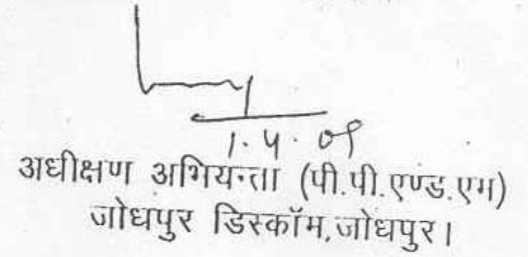 1.4.09
अधीक्षण अभियन्ता (पी.पी.एण्ड.एम)
जोधपुर डिस्कॉम,जोधपुर।